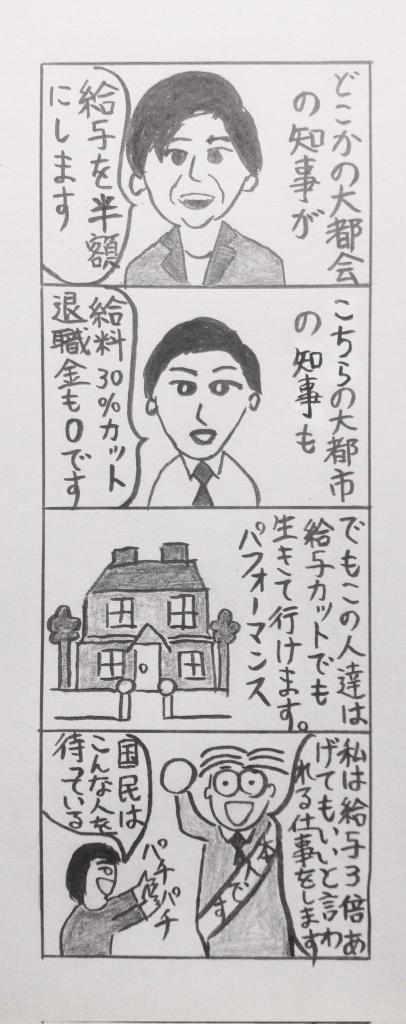 どこかの大都会
の知事が
給与を半額
にします
こちらの大都市
の知事も
給料30%カット
退職金も0です
でもこの人達は
給与カットでも
生きて行けます。
パフォーマンス
私は給与3倍あ
げてもいいと言わ
れる仕事をします
本人です
国民は
こんな人を
待っている
パチパチ
パチ